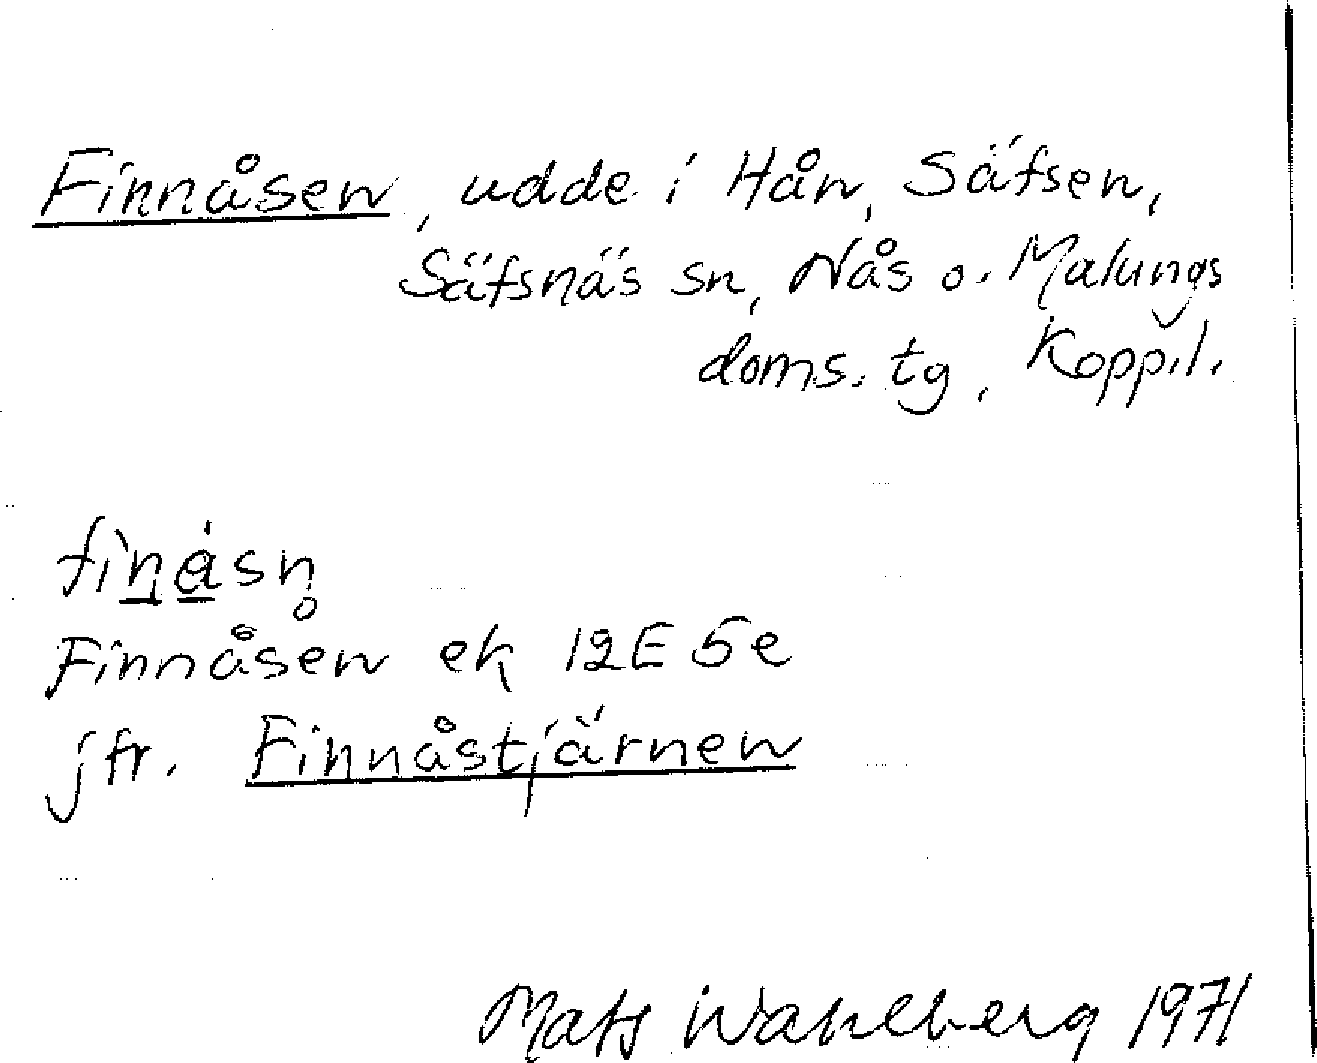 Finnåsen, udde i Hån, Säfsen,
Säfsnäs sn, Nås o. Malungs
doms. tg, Kopp.l.
Finnåsen ek 12E 5e
jfr. Finnåstjärnen
Mats Wahlberg 1971